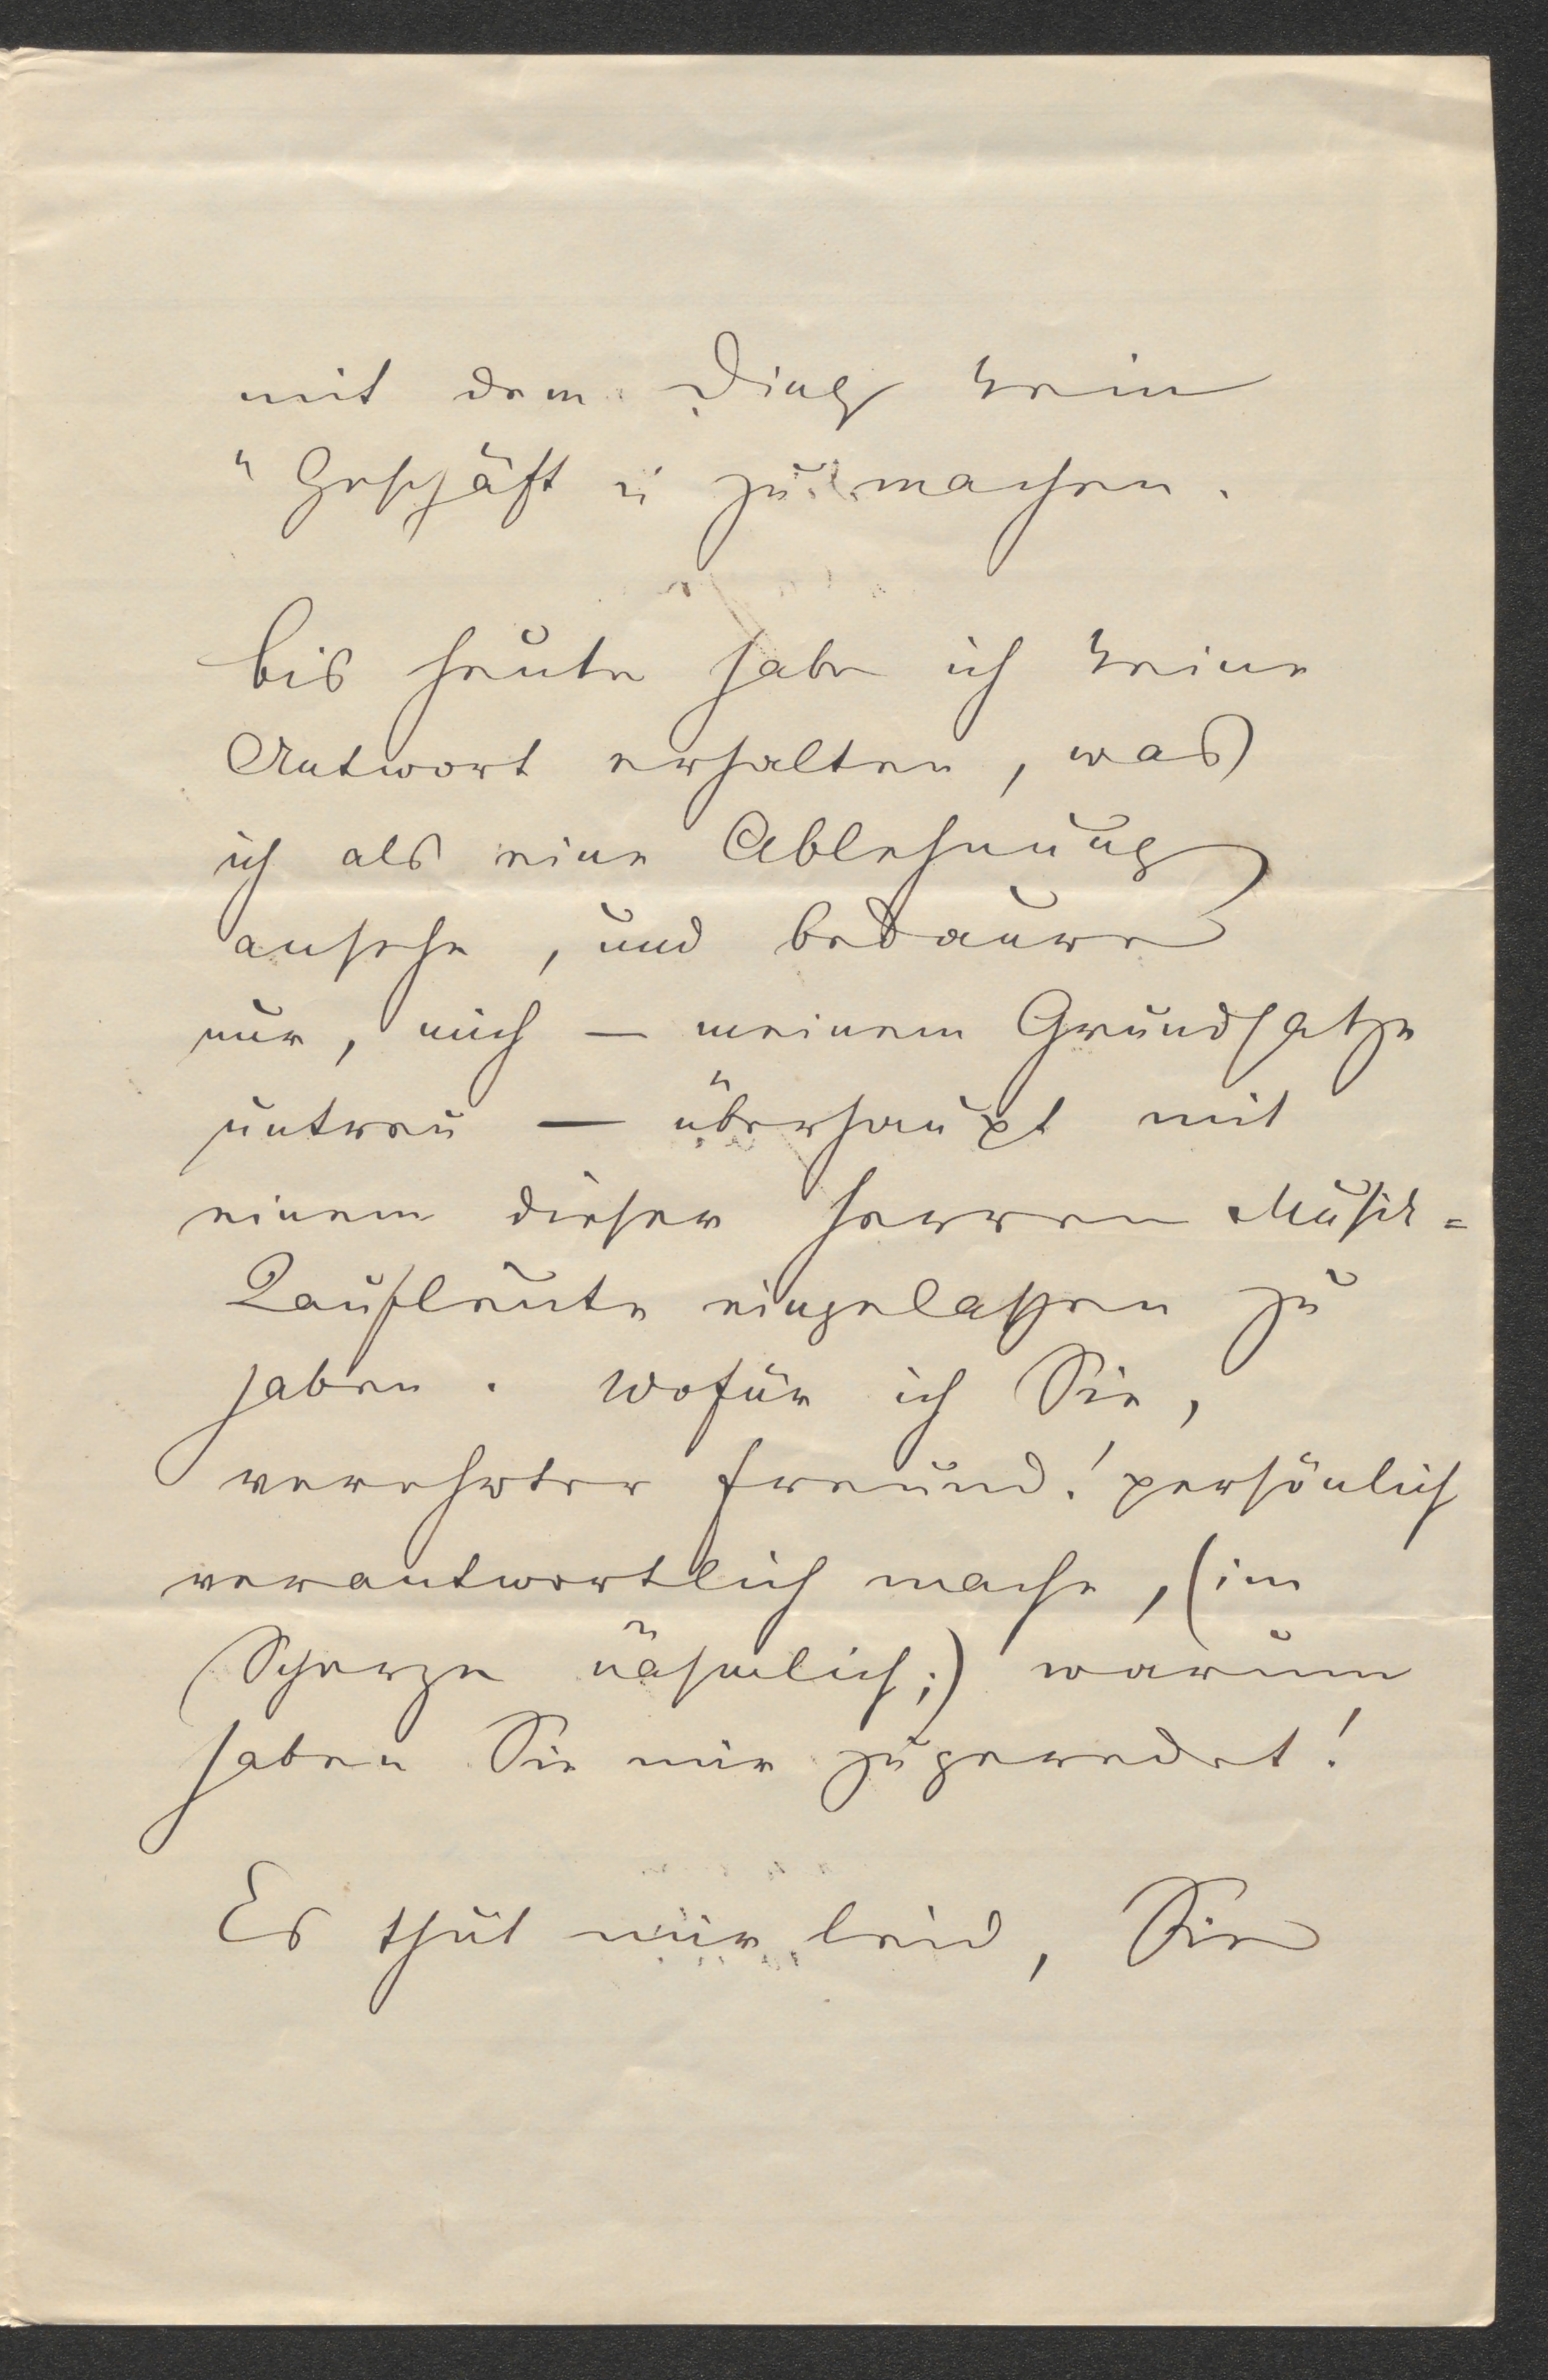 mit dem Ding kein
"Geschäft" zu machen.
bis heute habe ich keine
Antwort erhalten, was
ich als eine Ablehnung
ansehe, und bedaure
nur, mich — meinem Grundsatze
untreu — überhaupt mit
einem dieser Herren Musik=
Kaufleute eingelassen zu
haben. Wofür ich Sie,
verehrter Freund! persönlich
verantwortlich mache, (im
Scherze nähmlich;) warum
haben Sie mir zugeredet!
Es thut mir leid, Sie